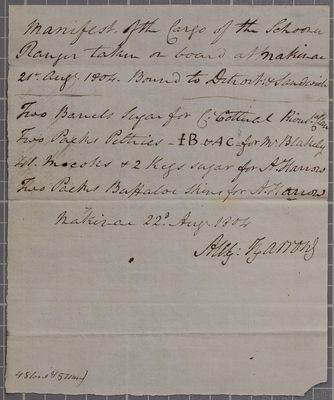 Manifest of the Cargo of the Schooner
Ranger taken on board at Makinac
21st Augt. 1804. Bound to Detroit & Sandwich
Two Barrels Sugar for
Two Packs Peltries IB & AC for Mr Blakely
41. Mocoks & 2 Kegs sugar for A. Harrow
Two Packs Buffaloe Skins for A. Harrow
Makinac 22d Aug. 1804
Alexr: Harrow